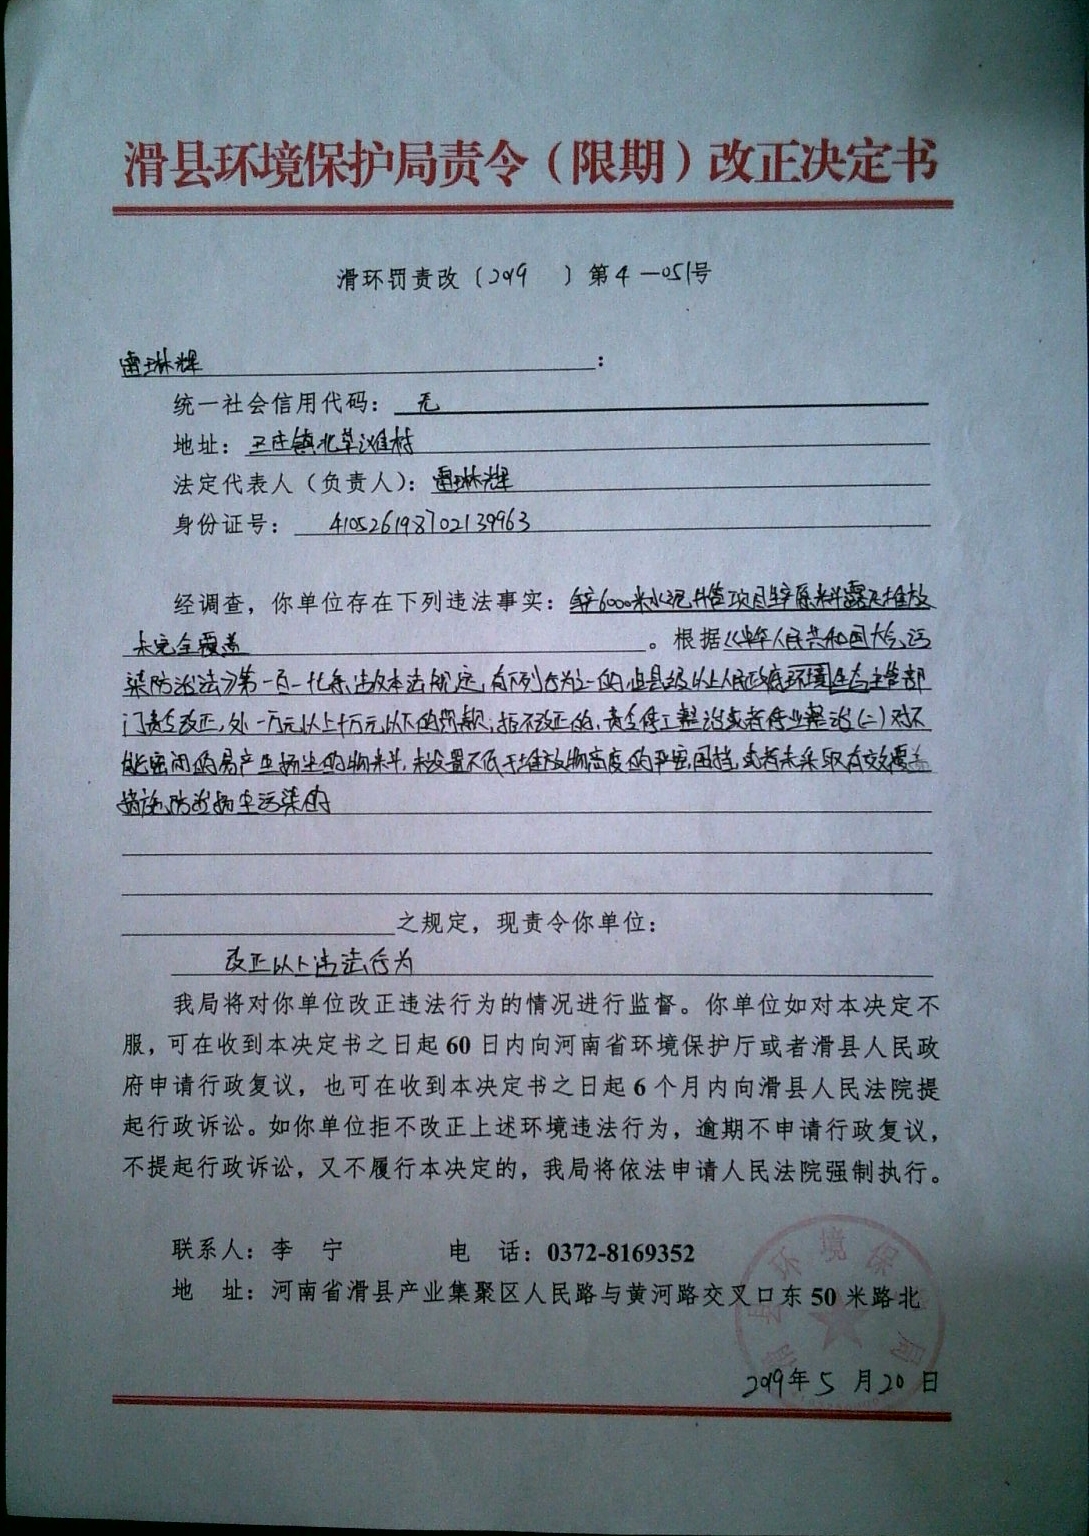 滑县环境保护局责令（限期）改正决定书
滑环罚责改〔2019 〕第4－051号
雷琳辉：
统一社会信用代码：无
地址：王庄镇北草滩村
法定代表人（负责人）：雷琳辉
身份证号：410526198702139963
经调查，你单位存在下列违法事实：年产6000米水泥井管项目生产原料露天堆放
未完全覆盖。根据《中华人民共和国大气污
染防治法》第一百一十七条违反本法规定，有下列行为之一的，由县级以上人民政府环境生态主管部
门责令改正，处一万元以上十万元以下的罚款；拒不改正的，责令停工整治或者停业整治（二）对不
能密闭的易产生扬尘的物料，未设置不低于堆放物高度的严密围挡，或者未采取有效覆盖
措施防治扬尘污染的
之规定，现责令你单位：
改正以上违法行为
我局将对你单位改正违法行为的情况进行监督。你单位如对本决定不
服，可在收到本决定书之日起60日内向河南省环境保护厅或者滑县人民政
府申请行政复议，也可在收到本决定书之日起6个月内向滑县人民法院提
起行政诉讼。如你单位拒不改正上述环境违法行为，逾期不申请行政复议，
不提起行政诉讼，又不履行本决定的，我局将依法申请人民法院强制执行。
联系人：李 宁 电 话：0372-8169352
地 址：河南省滑县产业集聚区人民路与黄河路交叉口东50米路北
2019年5月20日